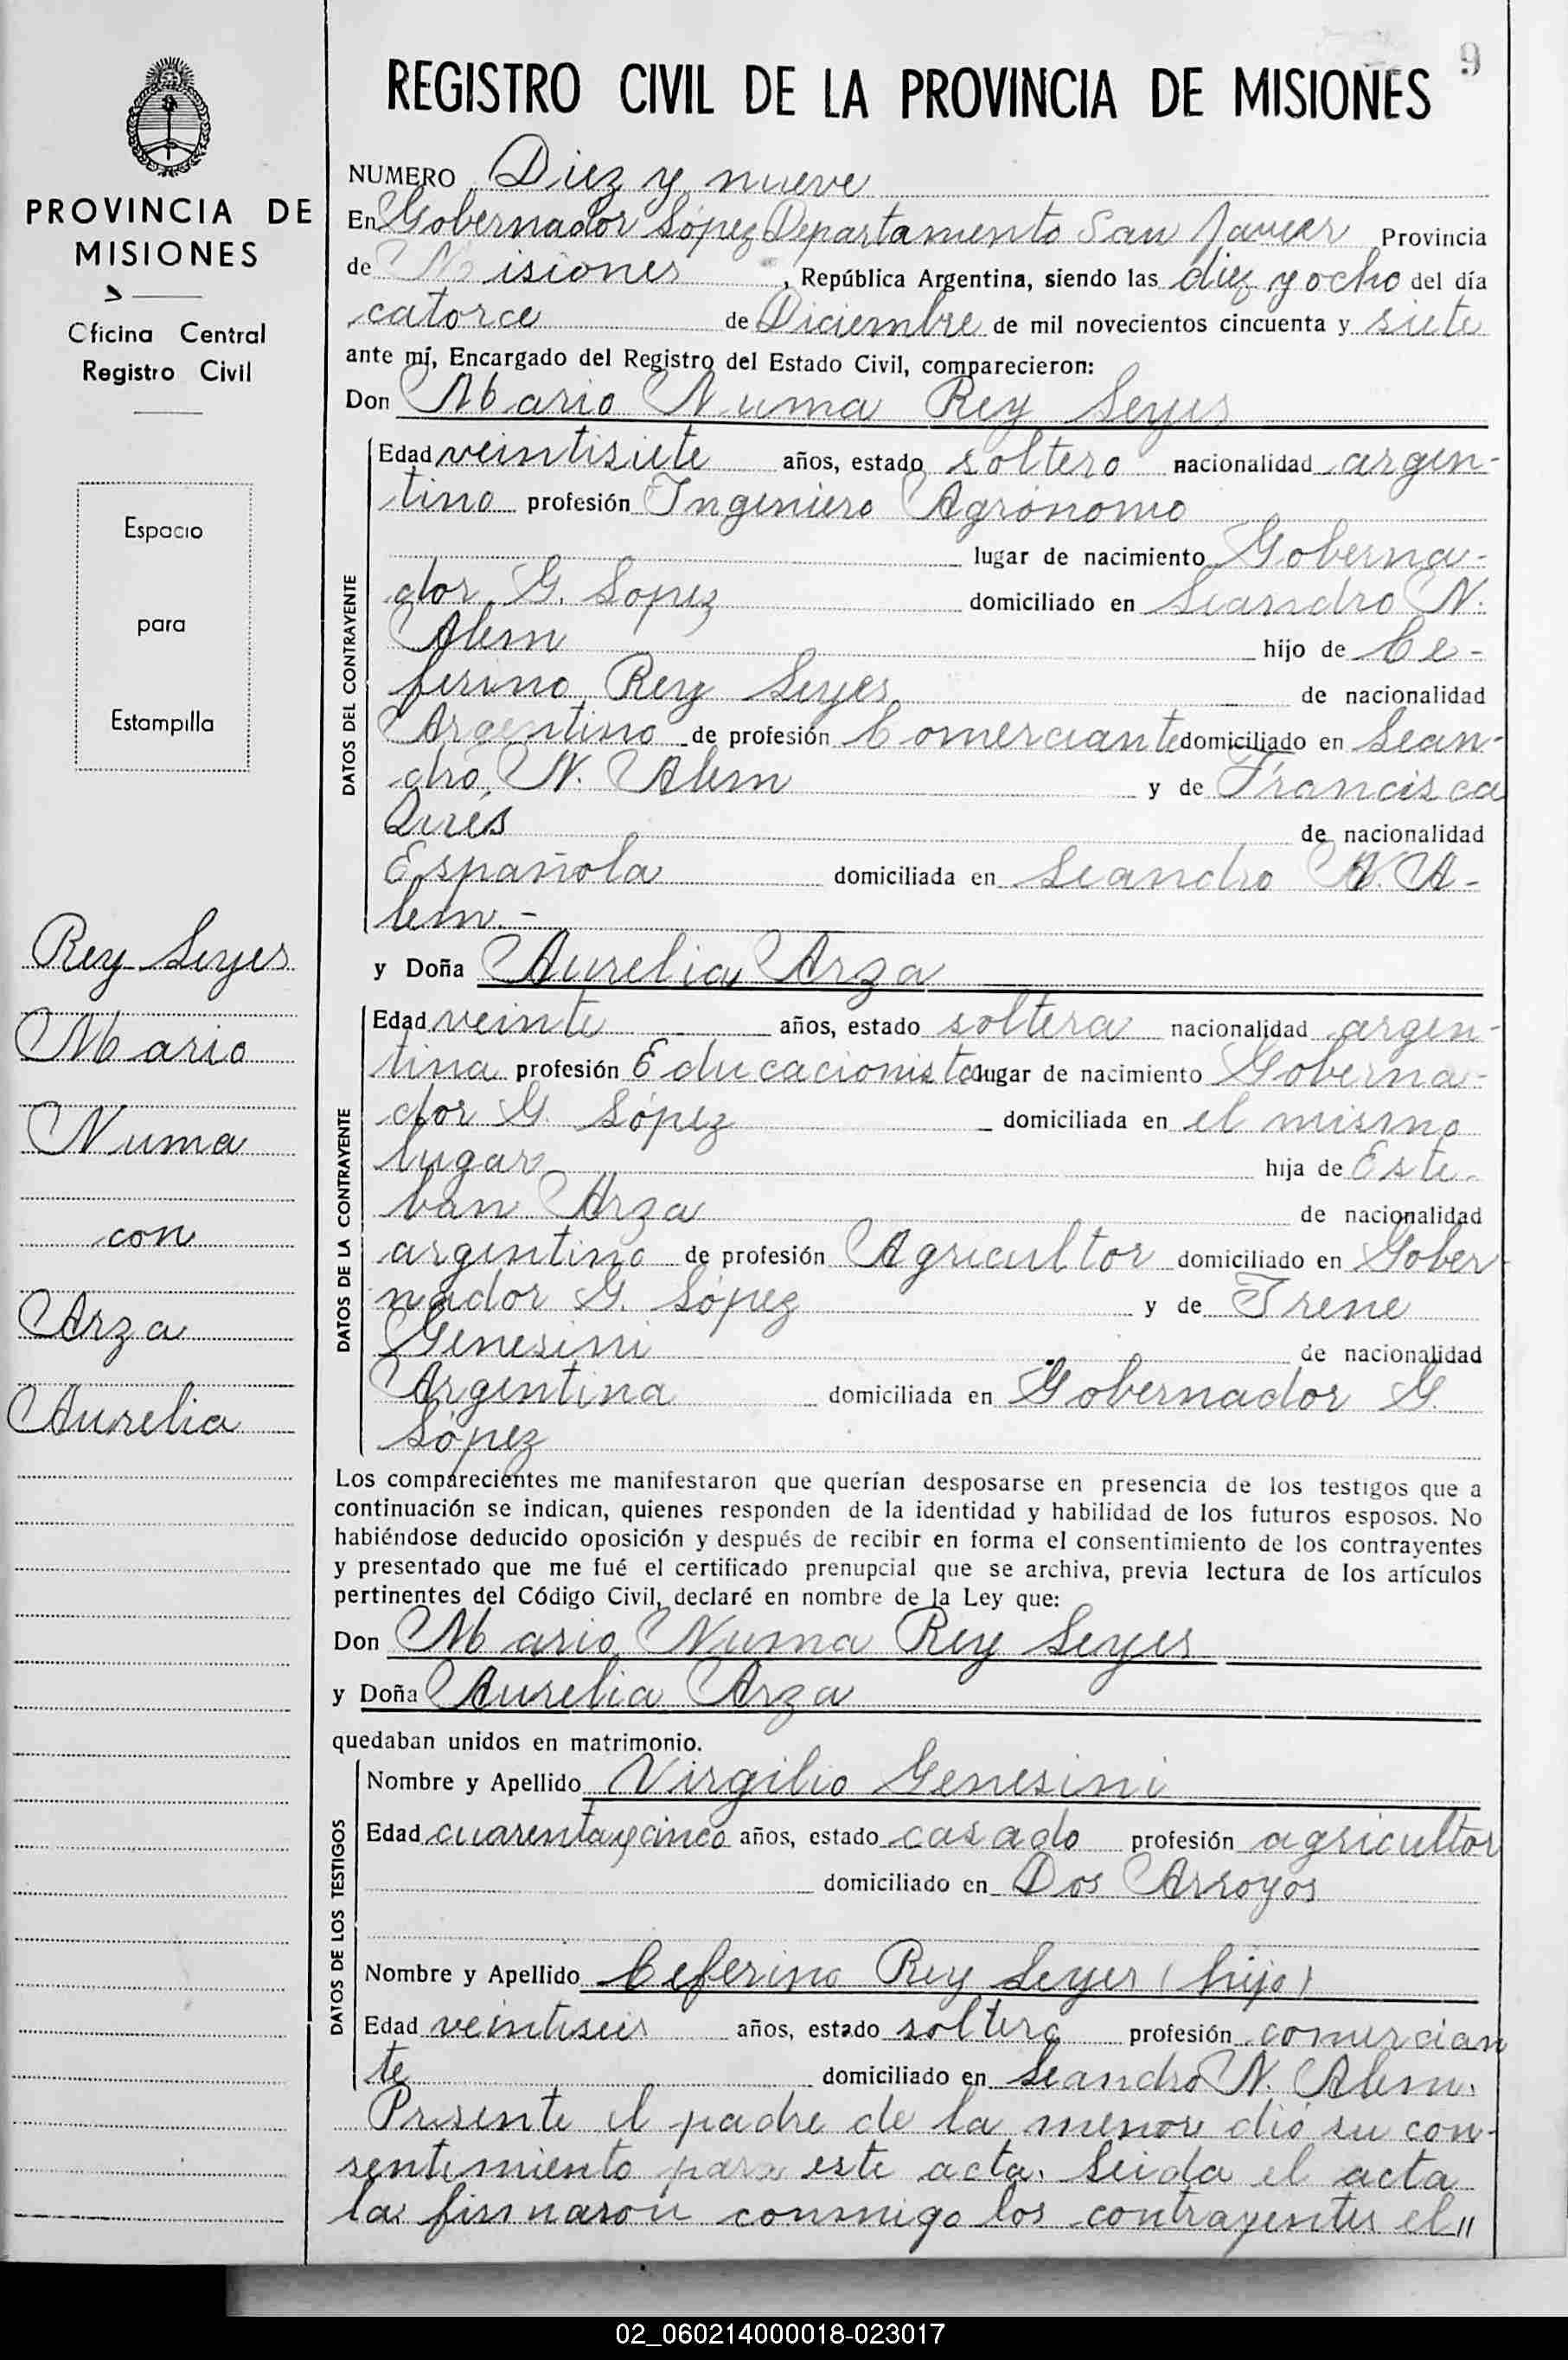 9
REGISTRO CIVIL DE LA PROVINCIA DE MISIONES
PROVINCIA DE
MISIONES
Oficina Central
Registro Civil
Espacio
para
Estampilla
Rey Leyes
Mario
Numa
con
Arza
Aurelia
NUMERO Diez y nueve
En Gobernador López Departamento San Javier Provincia
de Misiones, República Argentina, siendo las diez y ocho del día
catorce de Diciembre de mil novecientos cincuenta y siete
ante mí, Encargado del Registro del Estado Civil, comparecieron:
Don Mario Numa Rey Leyes
DATOS DEL CONTRAYENTE
Edad veintisiete años, estado soltero nacionalidad argen-
tino profesión Ingeniero Agrónomo
lugar de nacimiento Goberna-
dor G. Lopez domiciliado en Leandro N.
Alem hijo de Ce-
ferino Rey Leyes de nacionalidad
Argentino de profesión Comerciante domiciliado en Lean-
dro N. Alem y de Francisca
de nacionalidad
Española domiciliada en Leandro N. A-
lem.-
y Doña Aurelia Arza
DATOS DE LA CONTRAYENTE
Edad veinte años, estado soltera nacionalidad argen-
tina profesión Educacionista lugar de nacimiento Goberna-
dor G. López domiciliada en el mismo
lugar hija de Este-
ban Arza de nacionalidad
argentino de profesión Agricultor domiciliado en Gober
nador G. López y de Irene
Genesini de nacionalidad
Argentina domiciliada en Gobernador G.
López
Los comparecientes me manifestaron que querían desposarse en presencia de los testigos que a
continuación se indican, quienes responden de la identidad y habilidad de los futuros esposos. No
habiéndose deducido oposición y después de recibir en forma el consentimiento de los contrayentes
y presentado que me fué el certificado prenupcial que se archiva, previa lectura de los artículos
pertinentes del Código Civil, declaré en nombre de la Ley que:
Don Mario Numa Rey Leyes
y Doña Aurelia Arza
quedaban unidos en matrimonio.
DATOS DE LOS TESTIGOS
Nombre y Apellido Virgilio Genesini
Edad cuarenta y cinco años, estado casado profesión agricultor
domiciliado en Dos Arroyos
Nombre y Apellido Ceferino Rey Leyes (hijo)
Edad veintiseis años, estado soltero profesión comercian
te domiciliado en Leandro N. Alem.
Presente el padre de la menor dió su con-
sentimiento para este acta. Leida el acta
la firmaron conmigo los contrayentes el "
02_060214000018-023017